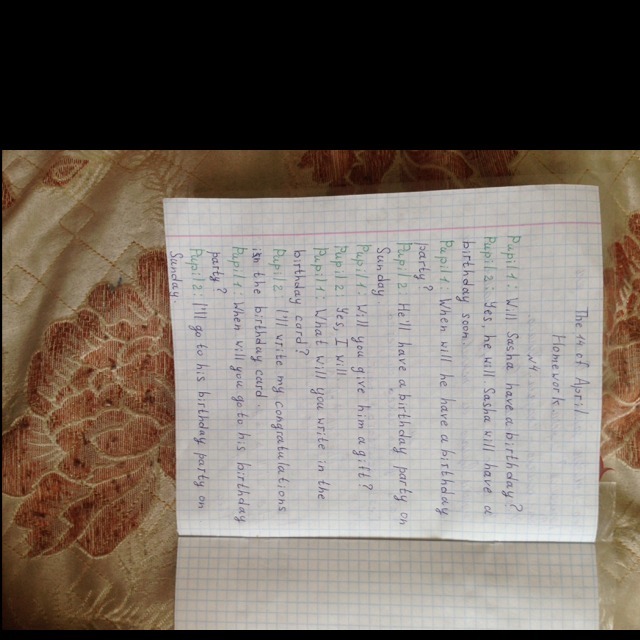 The 14 of April
Homework
№4
Pupil 1: Will Sasha have a birthday?
Pupil 2: Yes, he will Sasha will have a
birthday soon.
Pupil 1: When will he have a birthday
party?
Pupil 2: He'll have a birthday party on
Sunday
Pupil 1: Will you give him a gift?
Pupil 2: Yes, I will.
Pupil 1: What will you write in the
birthday card?
Pupil 2: I'll write my congratulations
in the birthday card
Pupil 1: When will you go to his birthday
party?
Pupil 2: I'll go to his birthday party on
Sunday